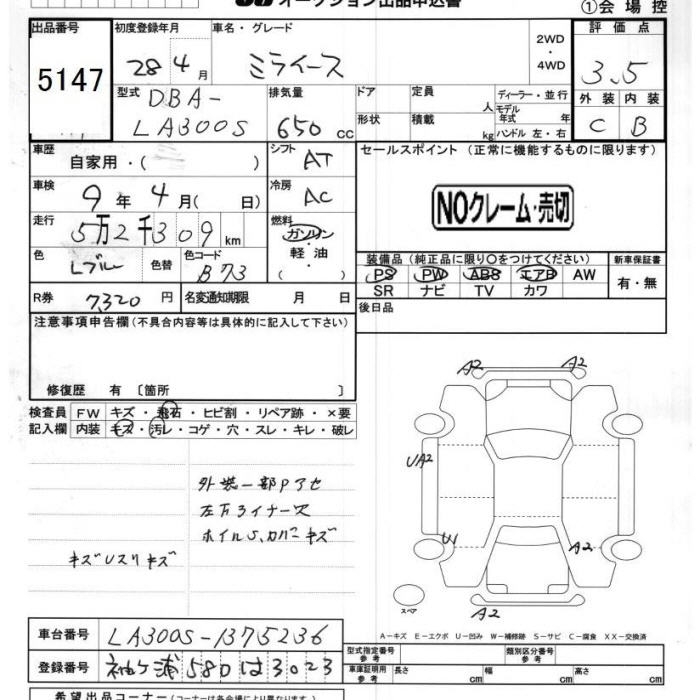 オークション出品申込書
①会場控
出品番号 5147
初度登録年月 28年4月
車名・グレード ミライース
2WD・4WD
評価点 3.5
外装 C 内装 B
型式 DBA-LA300S
排気量 650cc
ドア 形状
定員 人 積載 kg
ディーラー・並行
モデル年式 年
ハンドル 左・右
車歴 自家用・( )
シフト AT
セールスポイント (正常に機能するものに限ります)
車検 9年4月( 日)
冷房 AC
NOクレーム・売切
走行 5万2千309km
燃料 ガソリン・軽油・( )
色 Lブルー 色替
色コード B73
装備品(純正品に限り○をつけてください)
PS PW ABS エアB AW
SR ナビ TV カワ
新車保証書 有・無
R券 7,320円
名変通知期限 月 日
後日品
注意事項申告欄(不具合内容等は具体的に記入して下さい)
修復歴 有 〔箇所 〕
検査員記入欄
FW キズ・飛石・ヒビ割・リペア跡・×要
内装 キズ・汚レ・コゲ・穴・スレ・キレ・破レ
外装一部Pアセ
ホイルS、カバーキズ
キズUスリキズ
A2 A2
UA2
U1 A2
スペア
A2
A-キズ E-エクボ U-凹み W-補修跡 S-サビ C-腐食 XX-交換済
車台番号 LA300S-1375236
登録番号 袖ヶ浦580は3023
型式指定番号 参考
類別区分番号 参考
車庫証明用 参考 長さ cm 幅 cm 高さ cm
希望出品コーナー(コーナーは各会場により異なります)